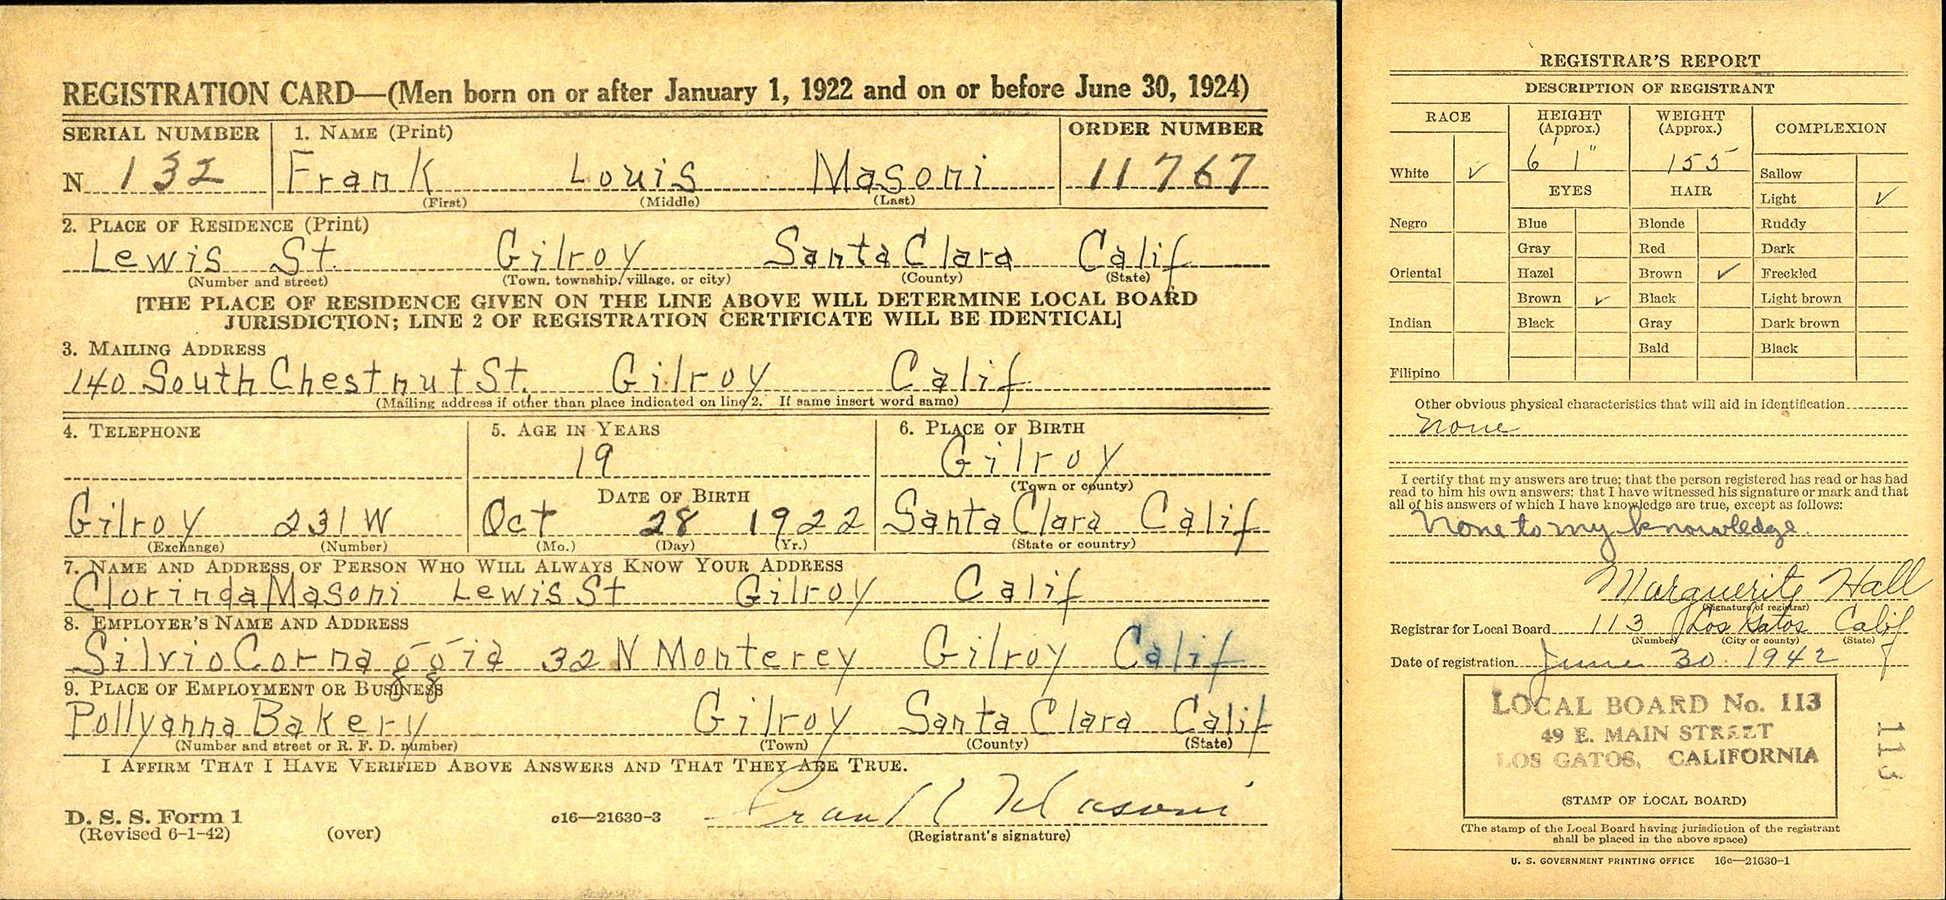 REGISTRATION CARD—(Men born on or after January 1, 1922 and on or before June 30, 1924)
SERIAL NUMBER 1. NAME (Print) ORDER NUMBER
N 132 Frank Louis Masoni 11767
(First) (Middle) (Last)
2. PLACE OF RESIDENCE (Print)
Lewis St. Gilroy Santa Clara Calif
(Number and street) (Town, township, village, or city) (County) (State)
[THE PLACE OF RESIDENCE GIVEN ON THE LINE ABOVE WILL DETERMINE LOCAL BOARD
JURISDICTION; LINE 2 OF REGISTRATION CERTIFICATE WILL BE IDENTICAL]
3. MAILING ADDRESS
140 South Chestnut St. Gilroy Calif
(Mailing address if other than place indicated on line 2. If same insert word same)
4. TELEPHONE 5. AGE IN YEARS 6. PLACE OF BIRTH
19 Gilroy
(Town or county)
DATE OF BIRTH
Gilroy 231W Oct 28 1922 Santa Clara Calif
(Exchange) (Number) (Mo.) (Day) (Yr.) (State or country)
7. NAME AND ADDRESS OF PERSON WHO WILL ALWAYS KNOW YOUR ADDRESS
Clorinda Masoni Lewis St Gilroy Calif
8. EMPLOYER'S NAME AND ADDRESS
Silvio Cornaggia 32 N Monterey Gilroy Calif
9. PLACE OF EMPLOYMENT OR BUSINESS
Pollyanna Bakery Gilroy Santa Clara Calif
(Number and street or R. F. D. number) (Town) (County) (State)
I AFFIRM THAT I HAVE VERIFIED ABOVE ANSWERS AND THAT THEY ARE TRUE.
Frank L Masoni
D. S. S. Form 1 c16—21630-3
(Revised 6-1-42) (over) (Registrant's signature)
REGISTRAR'S REPORT
DESCRIPTION OF REGISTRANT
RACE HEIGHT (Approx.) WEIGHT (Approx.) COMPLEXION
6' 1" 155
White ✓ Sallow
EYES HAIR
Light ✓
Negro Blue Blonde Ruddy
Gray Red Dark
Oriental Hazel Brown ✓ Freckled
Brown ✓ Black Light brown
Indian Black Gray Dark brown
Bald Black
Filipino
Other obvious physical characteristics that will aid in identification
None
I certify that my answers are true; that the person registered has read or has had
read to him his own answers; that I have witnessed his signature or mark and that
all of his answers of which I have knowledge are true, except as follows:
None to my knowledge.
Marguerite Hall
(Signature of registrar)
Registrar for Local Board 113 Los Gatos Calif
(Number) (City or county) (State)
Date of registration June 30 1942
LOCAL BOARD No. 113
49 E. MAIN STREET
LOS GATOS, CALIFORNIA
113
(STAMP OF LOCAL BOARD)
(The stamp of the Local Board having jurisdiction of the registrant
shall be placed in the above space)
U. S. GOVERNMENT PRINTING OFFICE 16c—21630-1